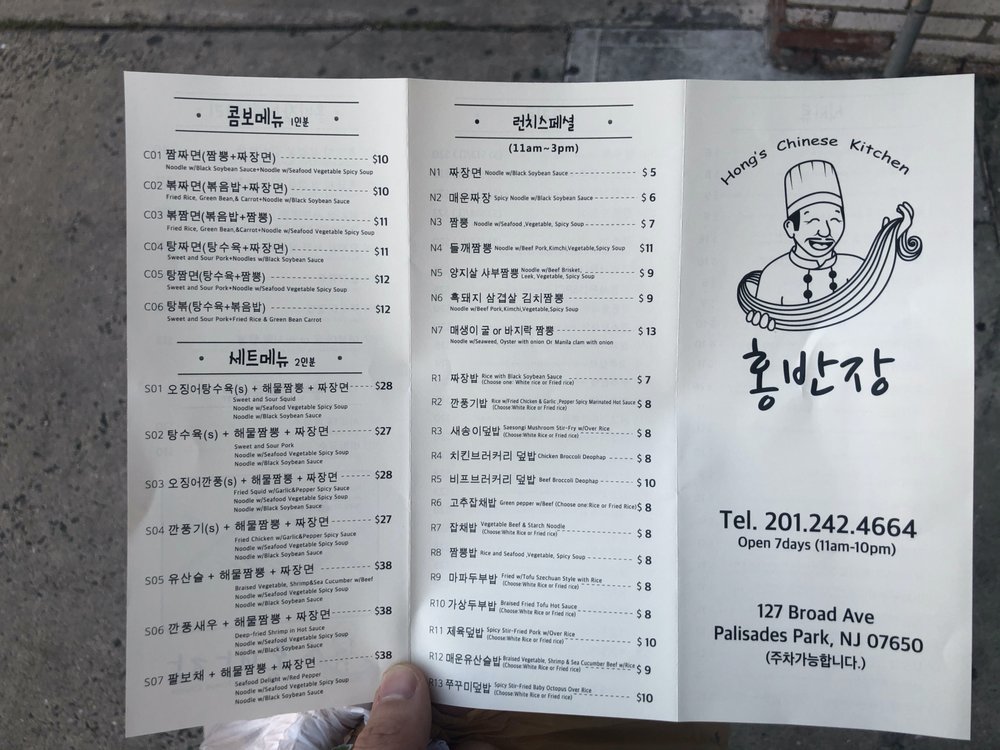 콤보메뉴 1인분
C01 짬짜면(짬뽕+짜장면) $10
Noodle w/Black Soybean Sauce+Noodle w/Seafood Vegetable Spicy Soup
C02 볶짜면(볶음밥+짜장면) $10
Fried Rice, Green Bean,& Carrot+Noodle w/Black Soybean Sauce
C03 볶짬면(볶음밥+짬뽕) $11
Fried Rice, Green Bean,&Carrot+Noodle w/Seafood Vegetable Spicy Soup
C04 탕짜면(탕수육+짜장면) $11
Sweet and Sour Pork+Noodles w/Black Soybean Sauce
C05 탕짬면(탕수육+짬뽕) $12
Sweet and Sour Pork+Noodle w/Seafood Vegetable Spicy Soup
C06 탕볶(탕수육+볶음밥) $12
Sweet and Sour Pork+Fried Rice & Green Bean Carrot
세트메뉴 2인분
S01 오징어탕수육(s) + 해물짬뽕 + 짜장면 $28
Sweet and Sour Squid
Noodle w/Seafood Vegetable Spicy Soup
Noodle w/Black Soybean Sauce
S02 탕수육(s) + 해물짬뽕 + 짜장면 $27
Sweet and Sour Pork
Noodle w/Seafood Vegetable Spicy Soup
Noodle w/Black Soybean Sauce
S03 오징어깐풍(s) + 해물짬뽕 + 짜장면 $28
Fried Squid w/Garlic&Pepper Spicy Sauce
Noodle w/Seafood Vegetable Spicy Soup
Noodle w/Black Soybean Sauce
S04 깐풍기(s) + 해물짬뽕 + 짜장면 $27
Fried Chicken w/Garlic&Pepper Spicy Sauce
Noodle w/Seafood Vegetable Spicy Soup
Noodle w/Black Soybean Sauce
S05 유산슬 + 해물짬뽕 + 짜장면 $38
Braised Vegetable, Shrimp&Sea Cucumber w/Beef
Noodle w/Seafood Vegetable Spicy Soup
Noodle w/Black Soybean Sauce
S06 깐풍새우 + 해물짬뽕 + 짜장면 $38
Deep-fried Shrimp in Hot Sauce
Noodle w/Seafood Vegetable Spicy Soup
Noodle w/Black Soybean Sauce
S07 팔보채 + 해물짬뽕 + 짜장면 $38
Seafood Delight w/Red Pepper
Noodle w/Seafood Vegetable Spicy Soup
Noodle w/Black Soybean Sauce
런치스페셜
(11am~3pm)
N1 짜장면 Noodle w/Black Soybean Sauce $ 5
N2 매운짜장 Spicy Noodle w/Black Soybean Sauce $ 6
N3 짬뽕 Noodle w/Seafood ,Vegetable, Spicy Soup $ 7
N4 들깨짬뽕 Noodle w/Beef Pork,Kimchi,Vegetable,Spicy Soup $11
N5 양지살 사부짬뽕 Noodle w/Beef Brisket, $ 9
Leek, Vegetable, Spicy Soup
N6 흑돼지 삼겹살 김치짬뽕 $ 9
Noodle w/Beef Pork,Kimchi,Vegetable,Spicy Soup
N7 매생이 굴 or 바지락 짬뽕 $ 13
Noodle w/Seaweed, Oyster with onion Or Manila clam with onion
R1 짜장밥 Rice with Black Soybean Sauce $ 7
(Choose one: White rice or Fried rice)
R2 깐풍기밥 Rice w/Fried Chicken & Garlic ,Pepper Spicy Marinated Hot Sauce $ 8
(Choose:White Rice or Fried rice)
R3 새송이덮밥 Saesongi Mushroom Stir-Fry w/Over Rice $ 8
(Choose:White Rice or Fried rice)
R4 치킨브러커리 덮밥 Chicken Broccoli Deophap $ 8
R5 비프브러커리 덮밥 Beef Broccoli Deophap $ 10
R6 고추잡채밥 Green pepper w/Beef (Choose one:Rice or Fried Rice) $ 8
R7 잡채밥 Vegetable Beef & Starch Noodle $ 8
(Choose:White Rice or Fried rice)
R8 짬뽕밥 Rice and Seafood ,Vegetable, Spicy Soup $ 8
R9 마파두부밥 Fried w/Tofu Szechuan Style with Rice $ 8
(Choose:White Rice or Fried rice)
R10 가상두부밥 Braised Fried Tofu Hot Sauce $ 8
(Choose:White Rice or Fried rice)
R11 제육덮밥 Spicy Stir-Fried Pork w/Over Rice $ 10
(Choose:White Rice or Fried rice)
R12 매운유산슬밥 Braised Vegetable, Shrimp & Sea Cucumber Beef w/Rice $ 9
(Choose:White Rice or Fried rice)
R13 쭈꾸미덮밥 Spicy Stir-Fried Baby Octopus Over Rice $10
(Choose:White Rice or Fried rice)
Hong's Chinese Kitchen
홍반장
Tel. 201.242.4664
Open 7days (11am-10pm)
127 Broad Ave
Palisades Park, NJ 07650
(주차가능합니다.)